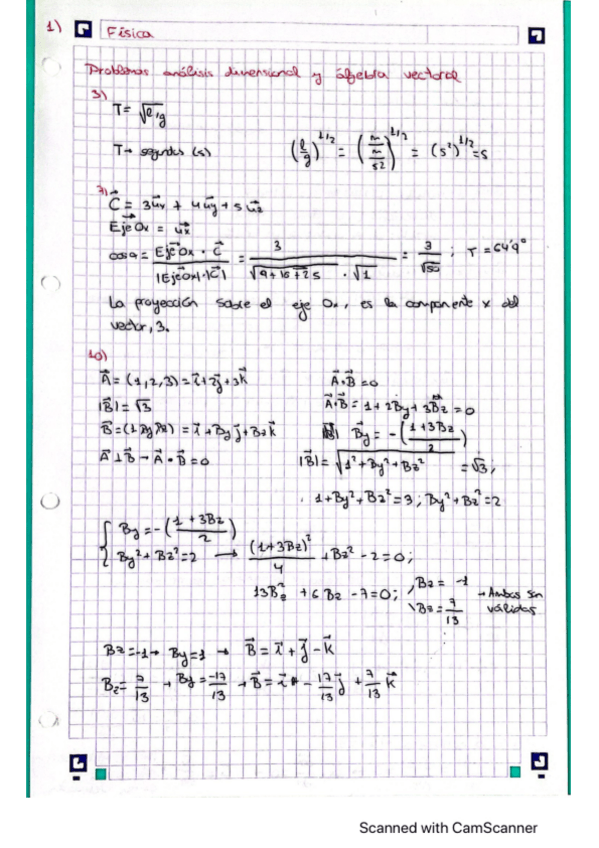 1)
Física
Problemas análisis dimensional y álgebra vectorial
3)
T = √l/g
T → segundos (s) (l/g)^1/2 = (m/(m/s2))^1/2 = (s²)^1/2 = s
7)
C⃗ = 3u⃗x + 4u⃗y + 5u⃗z
Eje⃗Ox = u⃗x
cos α = Eje⃗Ox · C⃗ / |Eje⃗Ox|·|C⃗| = 3 / √9+16+25 · √1 = 3/√50 ; r = 64'9°
La proyección sobre el eje Ox, es la componente x del
vector, 3.
10)
A⃗ = (1,2,3) = i⃗+2j⃗+3k⃗ A⃗·B⃗ = 0
|B| = √3 A⃗·B⃗ = 1 + 2By + 3Bz = 0
B⃗ = (1, By, Bz) = i⃗ + By j⃗ + Bz k⃗ B⃗y = -((1+3Bz)/2)
A⃗ ⊥ B⃗ → A⃗ · B⃗ = 0 |B⃗| = √1² + By² + Bz² = √3;
1 + By² + Bz² = 3 ; By² + Bz² = 2
{ By = -((1+3Bz)/2)
By² + Bz² = 2 → (1+3Bz)²/4 + Bz² - 2 = 0;
13Bz² + 6Bz - 7 = 0; Bz = -1
Bz = 7/13 → Ambas son válidas
Bz = -1 → By = 1 → B⃗ = i⃗ + j⃗ - k⃗
Bz = 7/13 → By = -17/13 → B⃗ = i⃗ - 17/13 j⃗ + 7/13 k⃗
Scanned with CamScanner